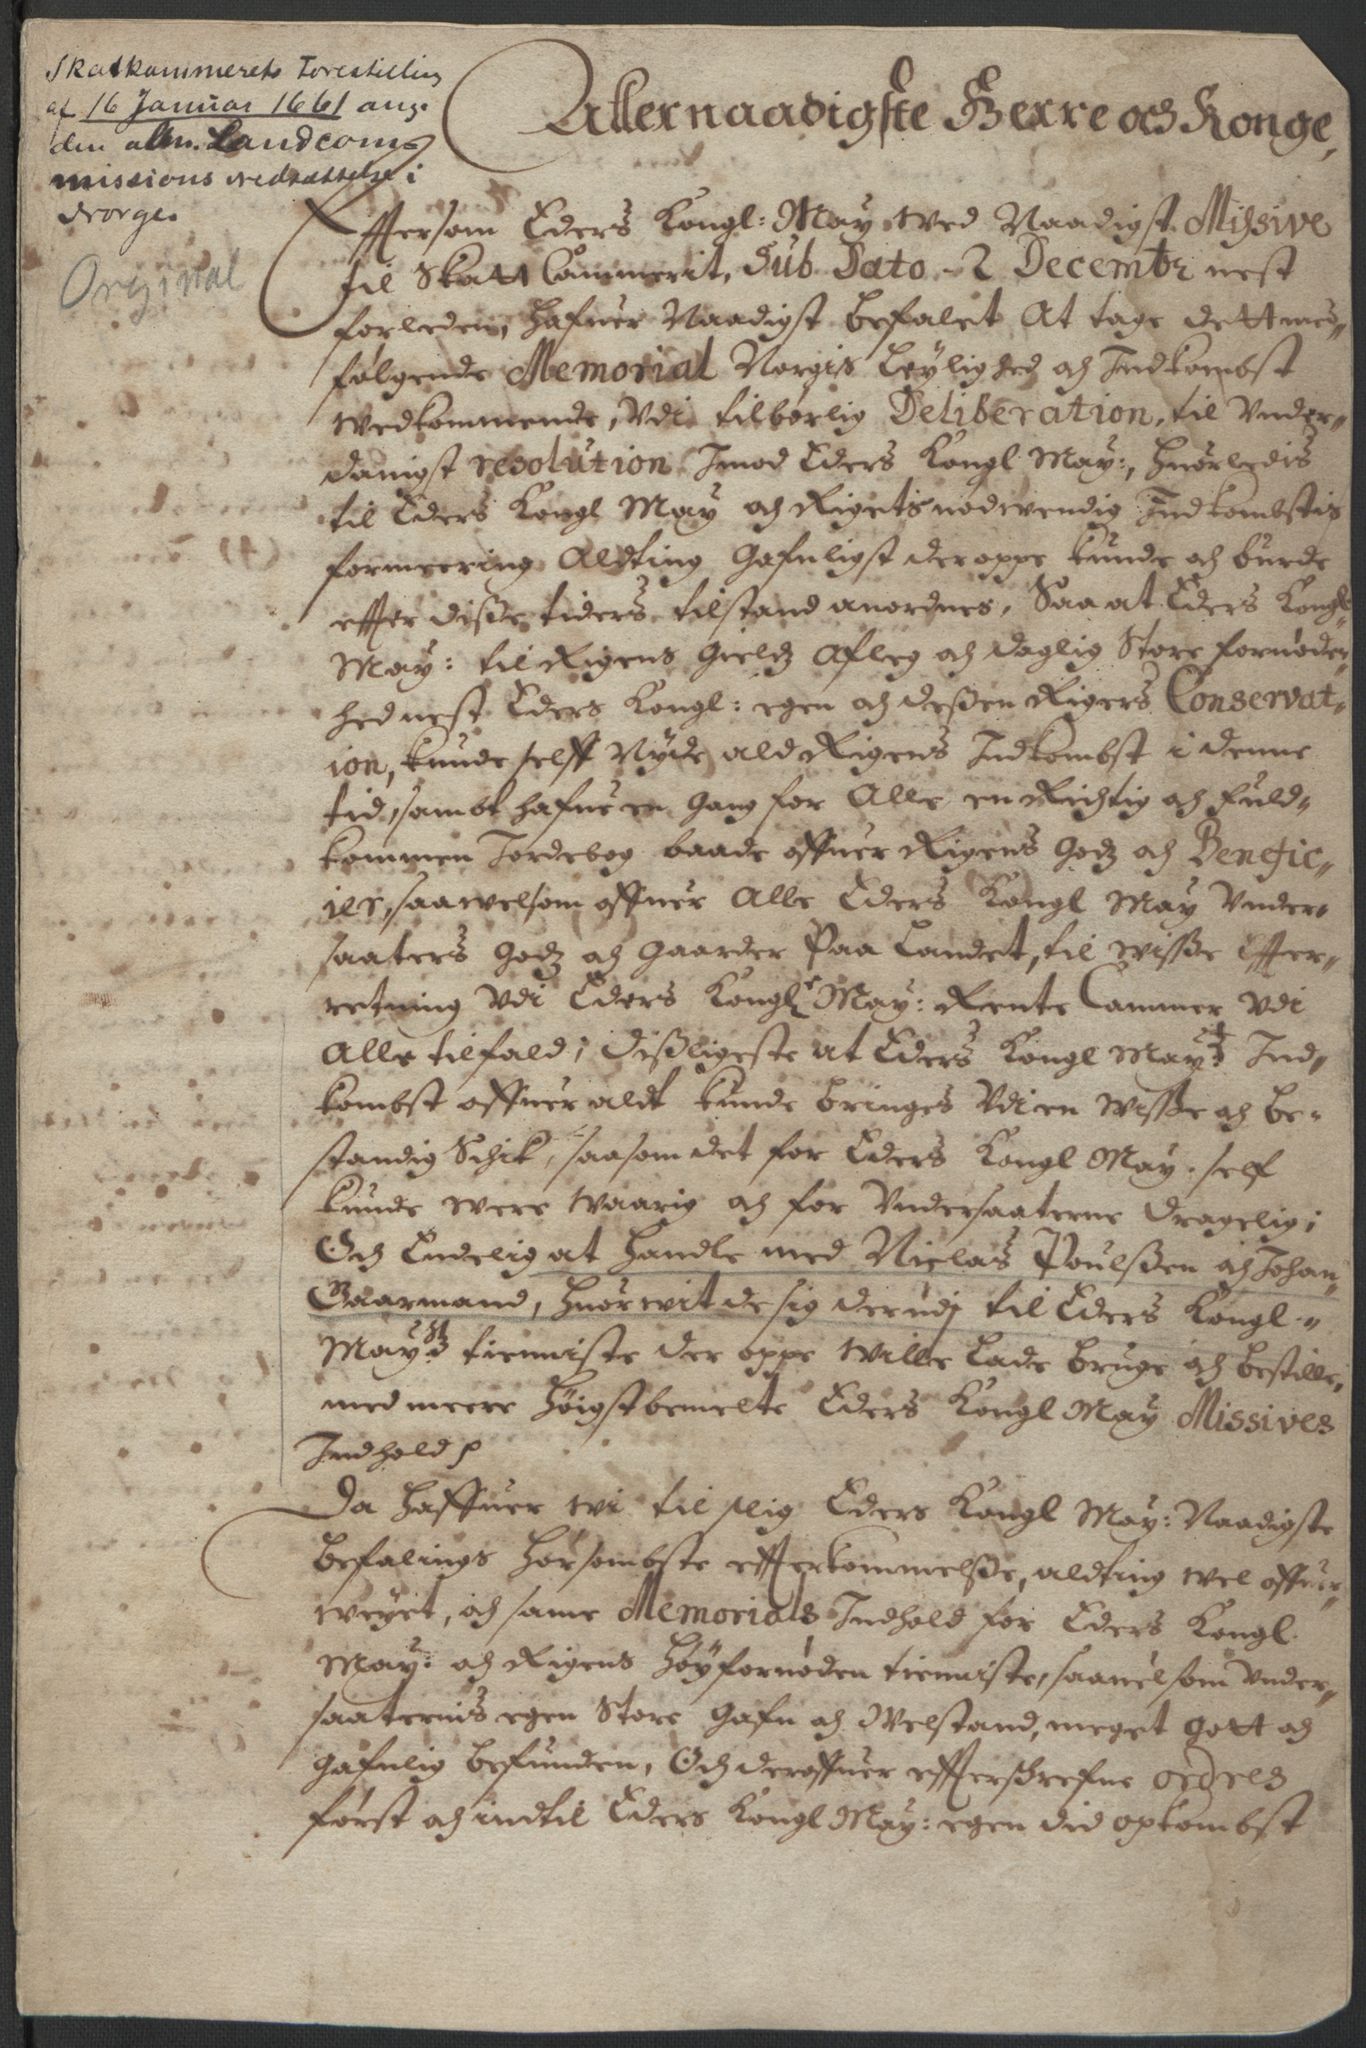 Skatkammerets Forestilling
af 16 Januar 1661 ang.
den alm. Landcom-
missions nedsættelse i
Norge.
Orginal
Allernaadigste Herre och Konge,
Effersom Eders Kongl: May wed Naadigst Missive
til Skatt Cammerit, Sub Dato - 2 Decembr nest
forleden, hafuer Naadigst befalet At tage dette med-
følgende Memorial Norgis Leylighed och Indkombst
wedkommende, Vdi tilbørlig Deliberation, til Vnder-
danigst resolution Imod Eders Kongl May:, huorledis
til Eders Kongl May och Rigets nødwendig Indkombstis
formeering Aldting Gafnligst deroppe kunde och burde
effter disse tiders tilstand anordnes, Saa at Eders Kongl
May: til Rigens Gieldz Afleg och daglig Store fornøden-
hed nest Eders Kongl: egen och dessen Rigers Conservat-
ion, kunde self Nyde ald Rigens Indkombst i denne
tid, sambt hafue en gang for Alle en Richtig och fuld-
kommen Jordebog baade offuer Rigens Godz och Benefic-
ier, saawelsom offuer Alle Eders Kongl May Vnder-
saaters Godz och Gaarder Paa Landet, til wisse Effter-
retning Vdi Eders Kongl May: Rente Cammer Vdi
Alle tilfald; disligeste at Eders Kongl Mayts Ind-
kombst offuer aldt kunde bringes Vdi en wisse och be-
standig Schik, saasom det for Eders Kongl May. self
kunde were waarig och for Vndersaaterne dragelig;
Och Endelig at handle med Nielas Poulssen och Johan
Gaarmand, huorwit de sig derudj til Eders Kongl.
Mayts tienniste der oppe wille lade bruge och bestille,
med meere høigstbemelte Eders Kongl May Missives
Indhold
Da haffuer wi til slig Eders Kongl May: Naadigste
befalings hørsombste effterkommelsse, aldting wel offuer-
weyet, och same Memorials Indhold for Eders Kongl.
May: och Rigens høyfornøden tienniste, saauelsom Vnder-
saaternis egen Store Gafn och Welstand, meget gott och
gafnlig befunden, Och deroffuer effterschrefne ordres
først och indtil Eders Kongl May: egen did opkombst